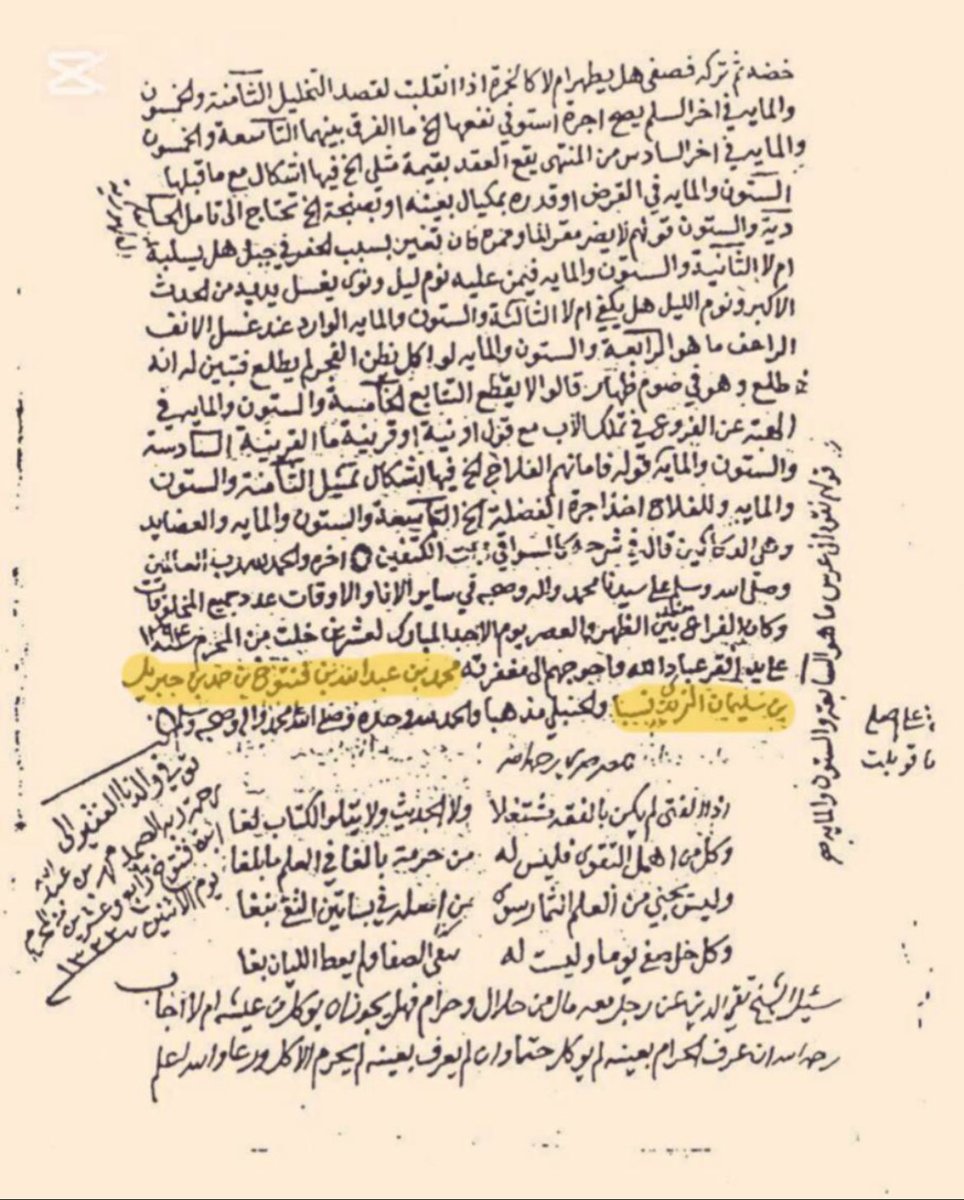 خضه ثم تركه فصفى هل يطهر ام لا كالخمرة اذا انقلبت لقصد التخليل الثامنة والخمسون
والمايه في اخر السلم يصح اجرة استوفي نفعها الخ ما الفرق بينهما التاسعة والخمسون
والمايه في اخر السادس من المنتهى يقع العقد بقيمة مثلي الخ فيها اشكال مع ما قبلها
الستون والمايه في القرض او قدره بمكيال بعينه او بصنجة الخ تحتاج الى تامل الحا
دية والستون قولهم لا يضر مقرالما وممره فان تغير بسبب لحفر في جبل هل يسلبه
ام لا الثانية والستون والمايه فيمن عليه نوم ليل ونوى بغسل يديه من الحدث
الاكبر ونوم الليل هل يكفي ام لا الثالثة والستون والمايه الوارد عند غسل الانف
الراعف ما هو الرابعة والستون والمايه لو اكل يظن الفجر لم يطلع فتبين له انه
طلع وهو في صوم ظهار قالوا لا يقطع التتابع الخامسة والستون والمايه في
الهبة عن الفروع في تملك الاب مع قول او نية او قرينة ما القرينة السادسة
والستون والمايه قوله فامانهم الفلاح الخ فيها اشكال تمثيل الثامنة والستون
والمايه وللفلاح اخذ اجرة الفضلة الخ التاسعة والستون والمايه والعضايد
وهي الدكاكين قال في شرحه كالسواقي بيت الكتفين اخره والحمد لله رب العالمين
وصلى الله وسلم على سيدنا محمد واله وصحبه في ساير الانا والاوقات عدد جميع المخلوقات
وكان الفراغ منه بين الظهر والعصر يوم الاحد المبارك لعشر خلت من المحرم سنة ١٢٩٤
على يد افقر عباد الله واحوجهم الى مغفرته محمد بن عبد الله بن فنتوخ بن حمد بن جبريل
بن سليمان نسبا والحنبلي مذهبا والحمد لله وحده وصلى الله على محمد واله وصحبه وسلم
اذا الفتى لم يكن بالفقه مشتغلا ولا الحديث ولا يتلو الكتاب لغا
وكل من اهمل التقوى فليس له من حرمة بالغا في العلم ما بلغا
وليس يجني من العلم الثمار سوى من اصله في بساتين التقى نبغا
وكل خل صفي يوما وليست له سقى الصفا ولم يعط اللبان بغا
سئيل الشيخ تقي الدين عن رجل معه مال من حلال وحرام فهل يجوز ان يوكل من عيشه ام لا اجاب
رحمه الله ان عرف الحرام بعينه لم يوكل حتما وان لم يعرف بعينه لم يحرم الاكل ورعا والله اعلم
توفي والدنا الفقير الى
رحمة ربه الصمد محمد بن عبد الله
يوم الاثنين ١٣٢٣
قولهم نقوا في عرس ما هو السابعة والستون والمايه صح